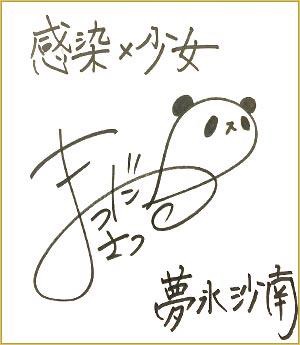 感染×少女
まつだ
さつ
夢永沙南